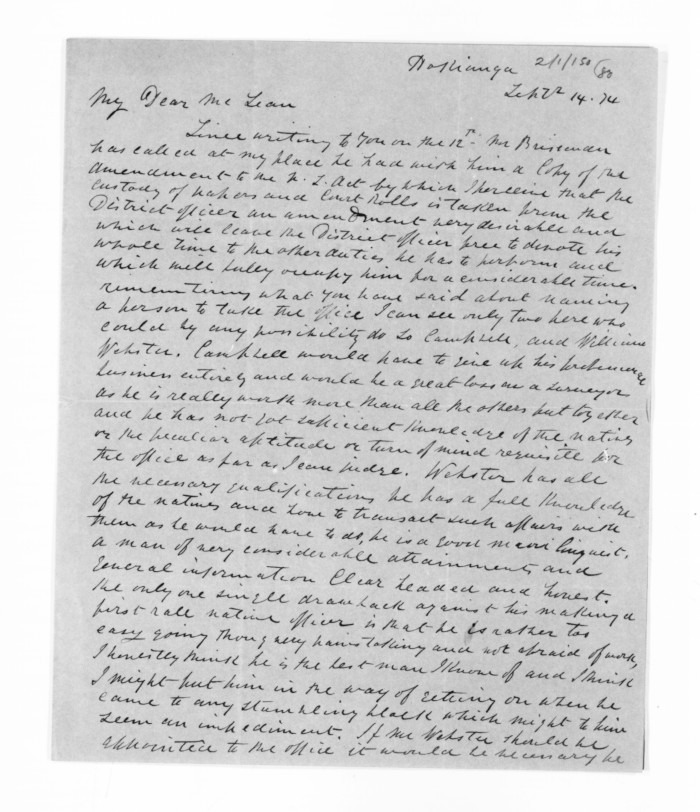 Hokianga 2/1/150 (80
Sept 14.74
My Dear Mc Lean
Since writing to you on the 12th Mr Brissenden
has called at my place he had with him a Copy of the
amendment to the N. L. Act by which I perceive that the
custody of papers and Court Rolls is taken from the
District officer an amendment very desirable and
which will leave the District officer free to devote his
whole time to the other duties he has to perform and
which will fully occupy him for a considerable time.
remembering what you have said about naming
a person to take the office I can see only two here who
could by any possibility do so Campbell, and William
Webster. Campbell would have to give up his professional
business entirely and would be a great loss as a surveyor
as he is really worth more than all the others put together
and he has not got sufficient knowledge of the natives
or the peculiar aptitude or turn of mind requisite for
the office as far as I can judge. Webster has all
the necessary qualifications he has a full knowledge
of the natives and how to transact such affairs with
them as he would have to do, he is a good maori linguist.
a man of very considerable attainments and
general information Clear headed and honest.
the only one single drawback against his making a
first rate native officer is that he is rather too
easy going thoug very pains taking and not afraid of work,
I honestly think he is the best man I know of and I think
I might put him in the way of getting on when he
came to any stumbling block which might to him
seem an impediment. If Mr Webster should be
appointed to the office it would be necessary he